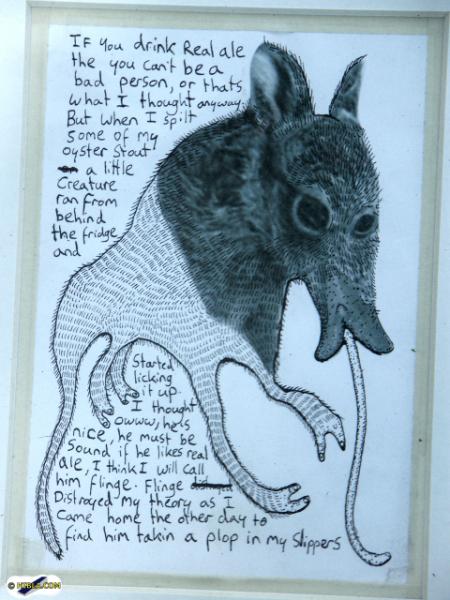 IF you drink Real ale
the you can't be a
bad person, or thats
what I thought anyway.
But when I spilt
some of my
oyster stout
a little
Creature
ran from
behind
the fridge
and
Started
licking
it up.
I thought
owww, hes
nice, he must be
Sound if he likes real
ale, I think I will call
him flinge. Flinge
Distroyed my theory as I
Came home the other day to
find him takin a plop in my Slippers